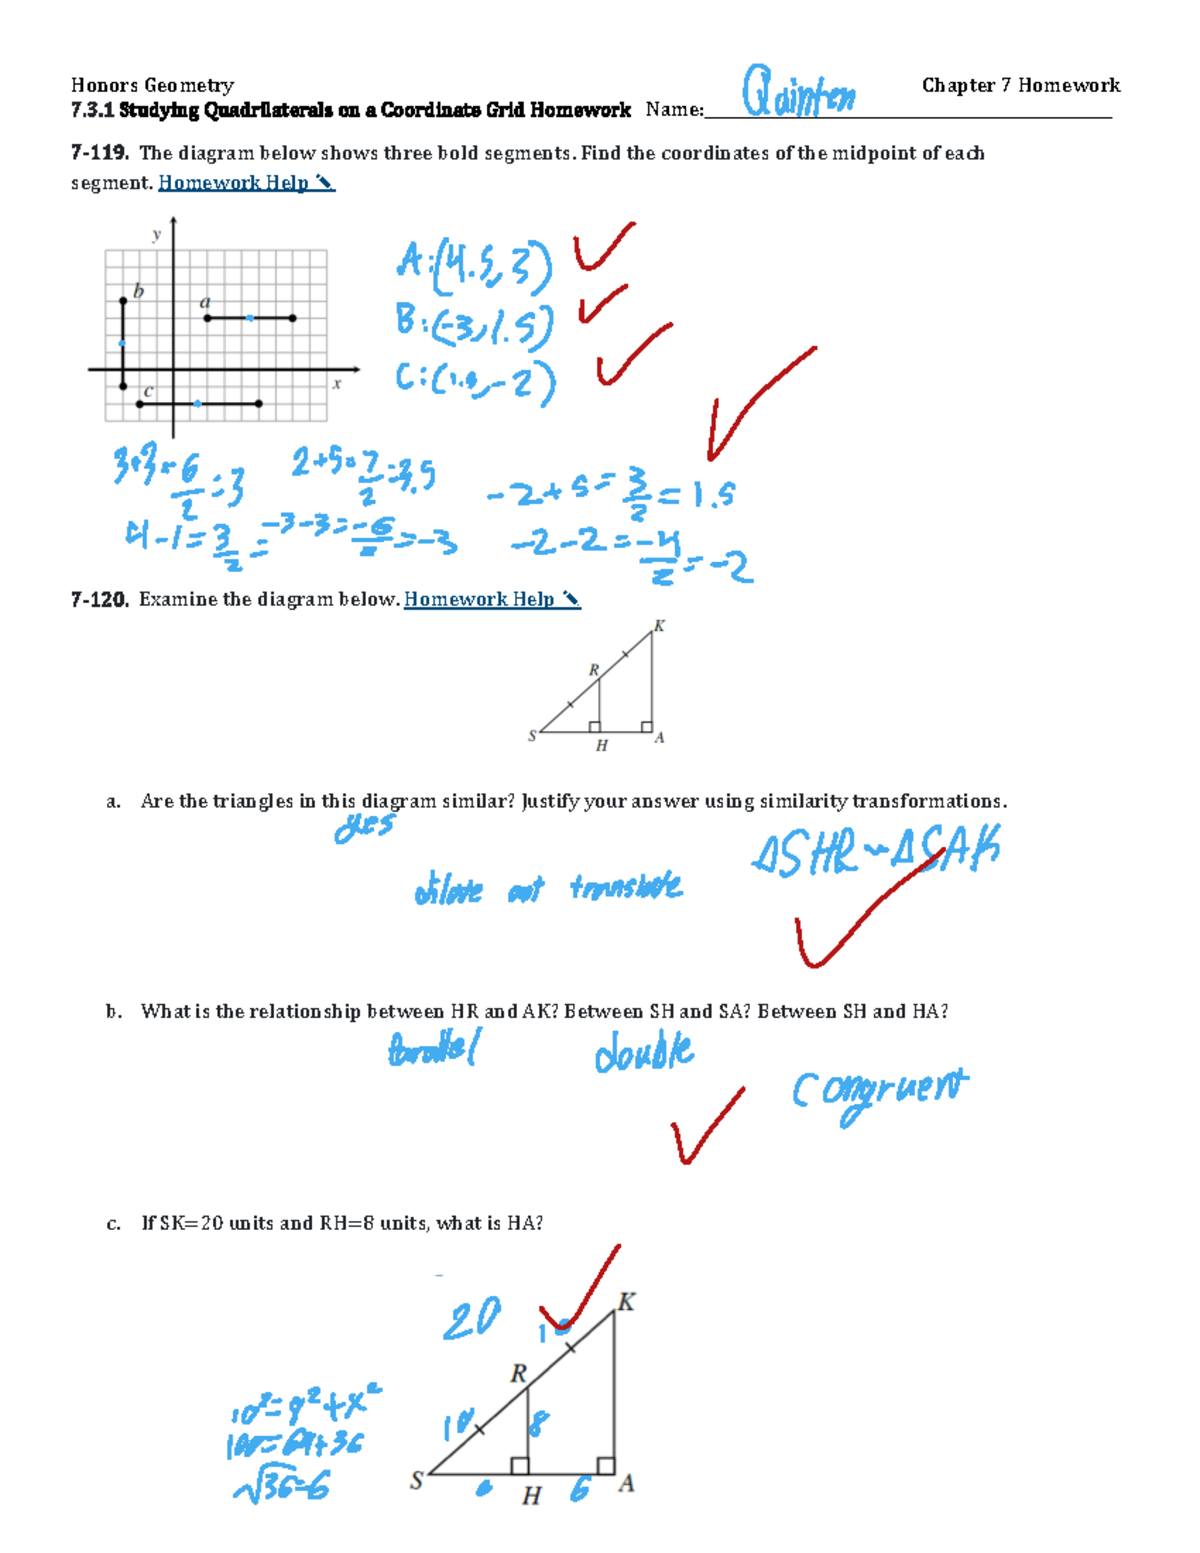 Honors Geometry
Chapter 7 Homework
7.3.1 Studying Quadrilaterals on a Coordinate Grid Homework Name: Quinten
7-119. The diagram below shows three bold segments. Find the coordinates of the midpoint of each
segment. Homework Help
y
b
a
c
x
A:(4.5, 3)
B:(-3, 1.5)
C:(1.5, -2)
3+3=6/2=3
2+5=7/2=3.5
-2+5=3/2=1.5
4-1=3/2=
-3-3=-6/2=-3
-2-2=-4/2=-2
7-120. Examine the diagram below. Homework Help
K
R
S
H
A
a. Are the triangles in this diagram similar? Justify your answer using similarity transformations.
yes
ΔSHR~ΔSAK
dilate translate
b. What is the relationship between HR and AK? Between SH and SA? Between SH and HA?
Parallel
double
congruent
c. If SK=20 units and RH=8 units, what is HA?
20
10
K
R
10
8
10²=8²+x²
100=64+36
√36=6
S
6
H
6
A